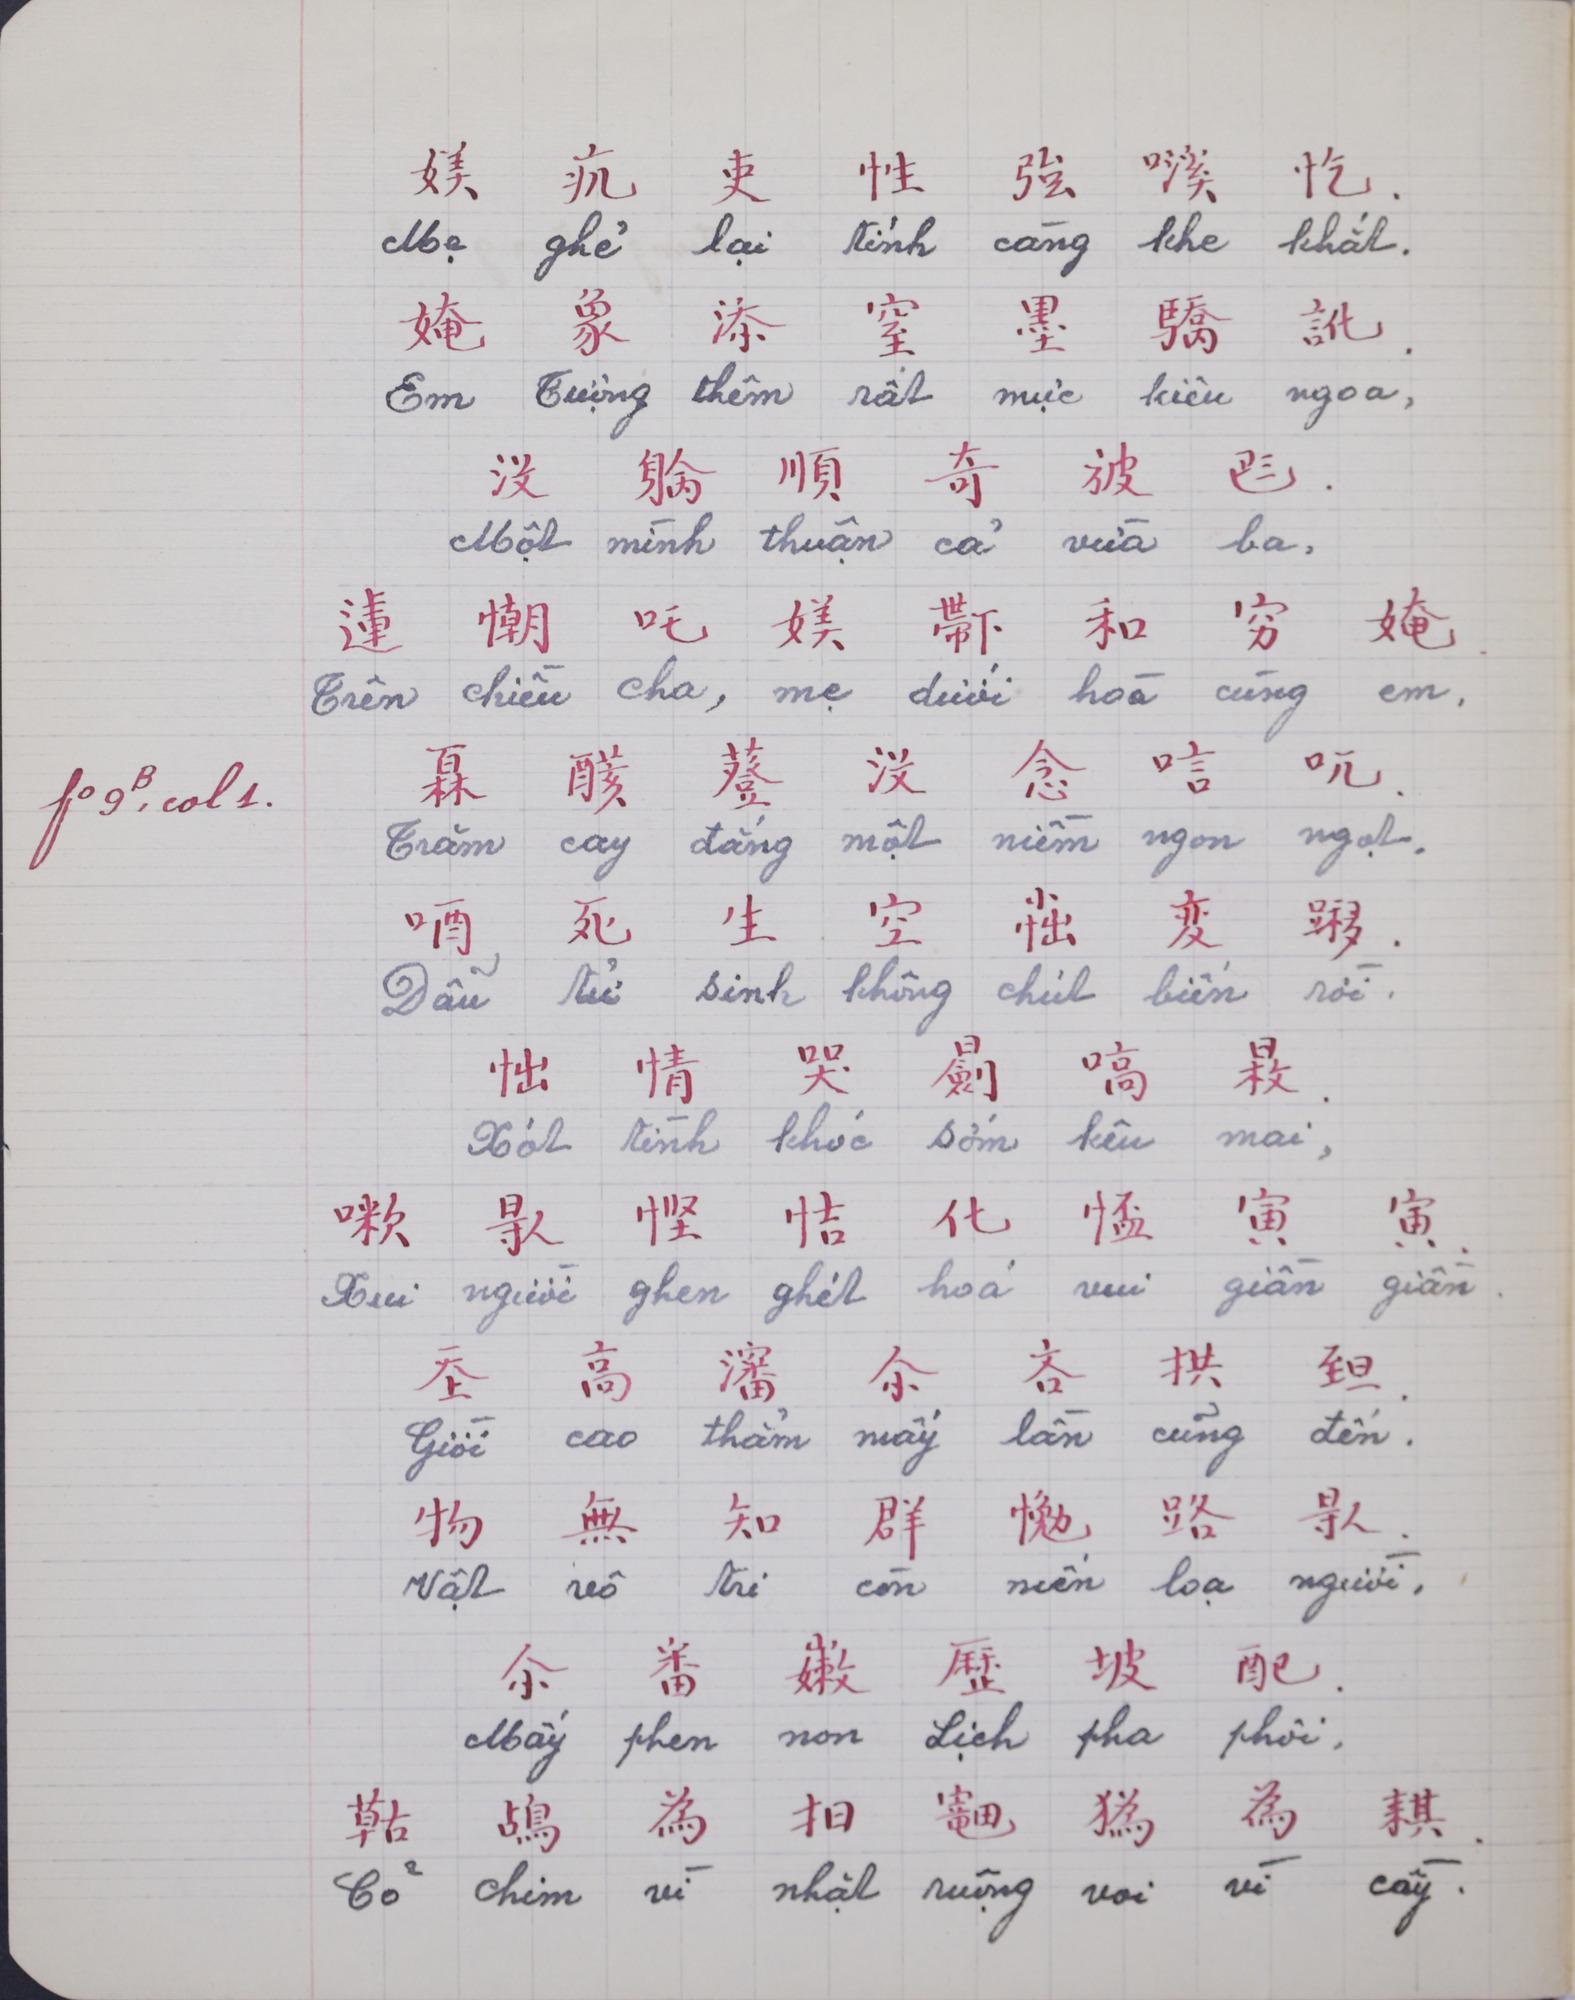 媄 疠 吏 性 強 㗭 忔.
Mẹ ghẻ lại tính càng khe khắt.
㛪 象 添 窒 墨 驕 訛.
Em Tượng thêm rất mực kiêu ngoa,
没 躺 順 奇 被 𠀧.
Một mình thuận cả vừa ba,
蓮 㤴 吒 媄 𤲂 和 穷 㛪.
Trên chiều cha, mẹ dưới hoà cùng em,
fº 9ᴮ, col 1.
𤾓 荄 䔲 没 念 唁 吭.
Trăm cay đắng một niềm ngon ngọt.
唒 死 生 空 𡭧 変 移.
Dẫu tử sinh không chút biến rời.
怞 情 哭 𣋽 嗃 𣈕.
Xót tình khóc sớm kêu mai,
𠶣 𠊛 慳 恄 化 㤕 寅 寅.
Xui người ghen ghét hoá vui giần giần.
𡗶 高 瀋 尒 吝 拱 𦤾.
Giời cao thẳm mấy lần cũng đến.
物 無 知 群 𢚶 路 𠊛.
Vật vô tri còn mến loạ người,
尒 番 嫩 歷 坡 配.
Mấy phen non Lịch pha phôi,
𦹵 鴣 為 抇 𤲌 㺔 為 𦓿.
Cỏ chim vì nhặt ruộng voi vì cầy.